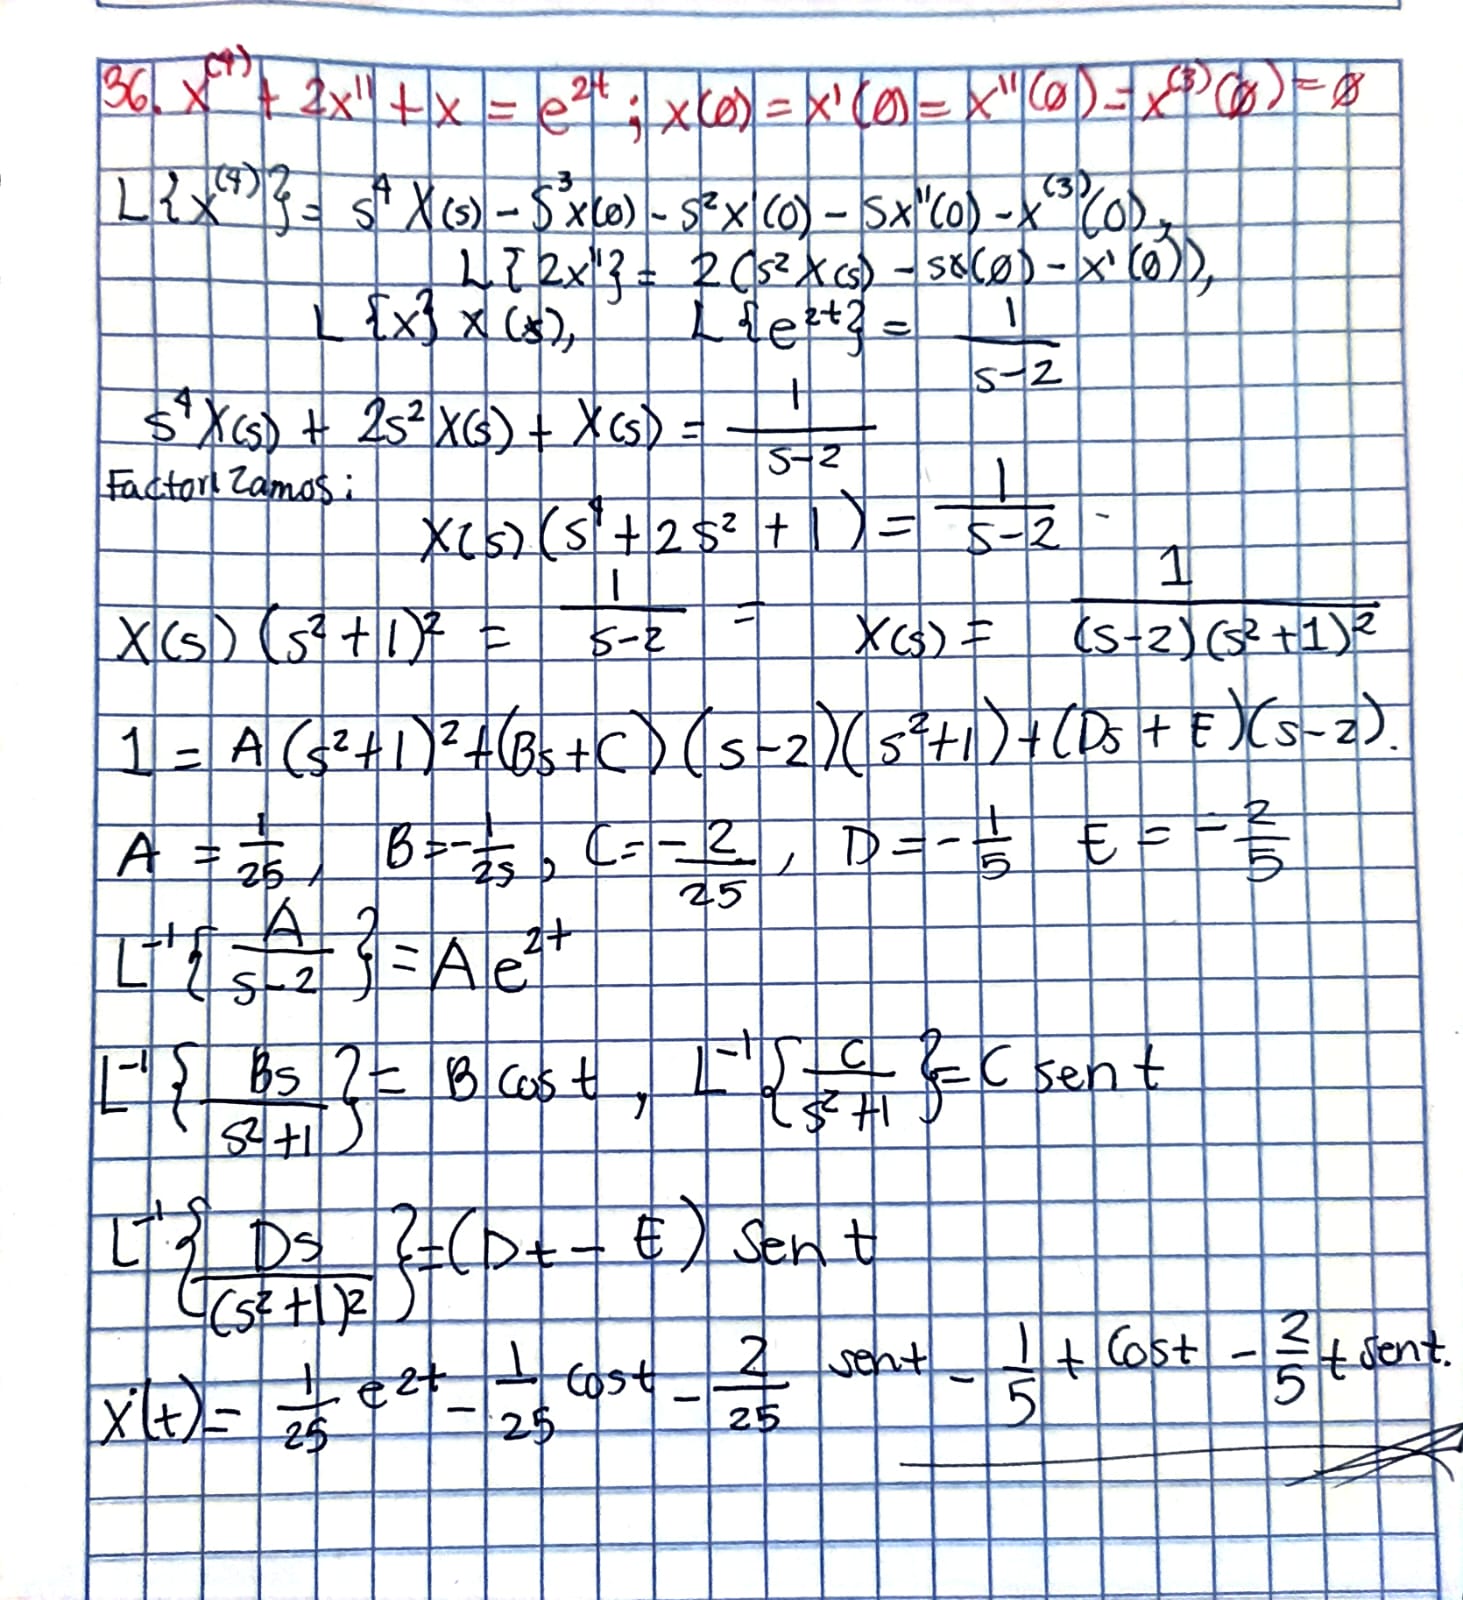 36. x⁽⁴⁾ + 2x'' + x = e²ᵗ ; x(0) = x'(0) = x''(0) = x⁽³⁾(0) = 0
L{x⁽⁴⁾} = s⁴ X(s) - s³x(0) - s²x'(0) - sx''(0) - x⁽³⁾(0),
L{2x''} = 2(s² X(s) - sx(0) - x'(0)),
L{x} x(s), L{e²ᵗ} = 1/(s-2)
s⁴X(s) + 2s² X(s) + X(s) = 1/(s-2)
Factorizamos:
X(s)(s⁴ + 2s² + 1) = 1/(s-2)
X(s)(s²+1)² = 1/(s-2) = X(s) = 1/((s-2)(s²+1)²)
1 = A(s²+1)² + (Bs+C)(s-2)(s²+1) + (Ds + E)(s-2).
A = 1/25, B = -1/25, C = -2/25, D = -1/5 E = -2/5
L⁻¹{A/(s-2)} = A e²ᵗ
L⁻¹{Bs/(s²+1)} = B cos t, L⁻¹{C/(s²+1)} = C sen t
L⁻¹{Ds/(s²+1)²} = (Dt - E) sen t
X(t) = 1/25 e²ᵗ - 1/25 cos t - 2/25 sen t - 1/5 t cos t - 2/5 t sen t.